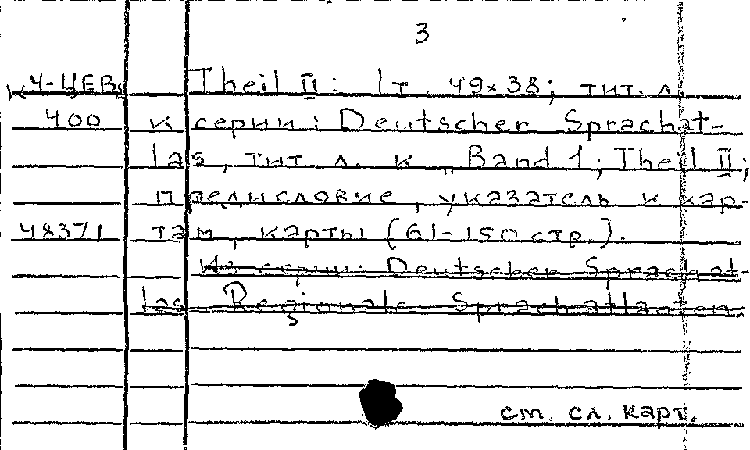 3
К Ч-ЦЕВ Theil II: 1т. 49×38; тит. л.
400 к серии: Deutscher Sprachat-
las, тит. л. к Band 1; Theil II;
предисловие, указатель к кар-
48371 там, карты (61-150 стр.).
Из серии: Deutscher Sprachat-
las Regionale Sprachatlanten
см. сл. карт.